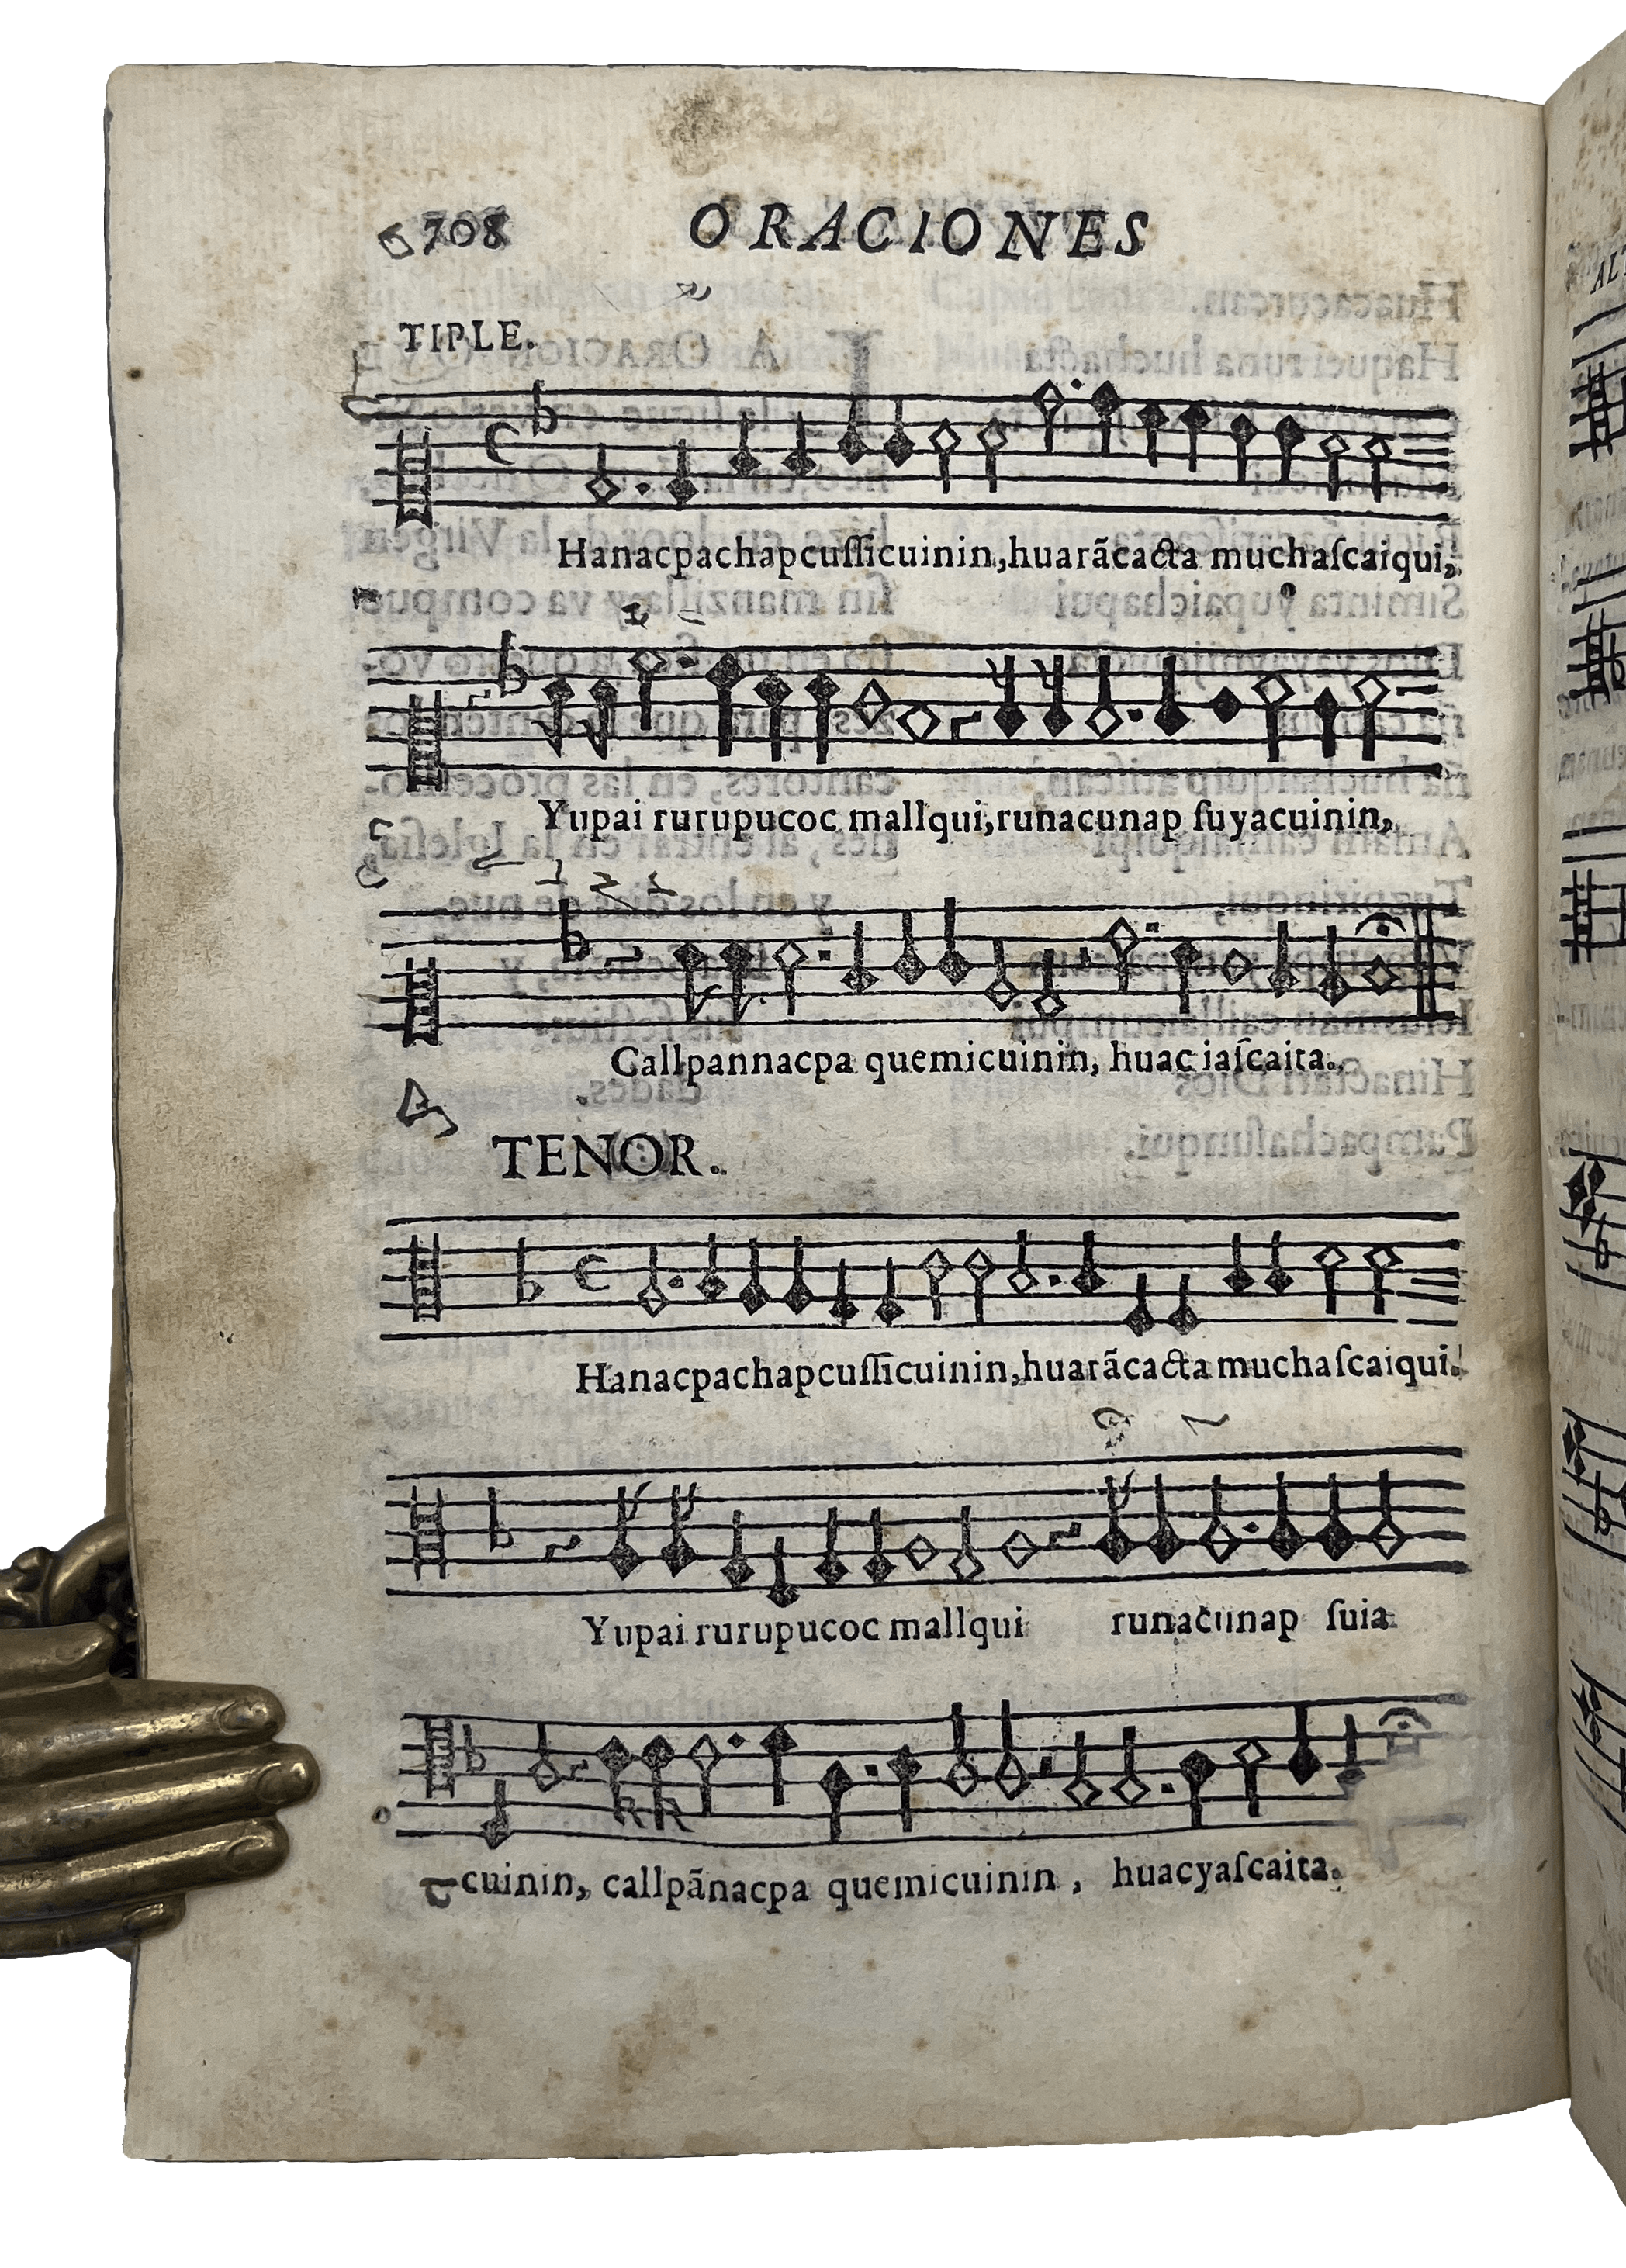 708 ORACIONES
TIPLE.
Hanacpachapcuſſicuinin,huarãcacta muchaſcaiqui,
Yupai rurupucoc mallqui,runacunap ſuyacuinin,
Callpannacpa quemicuinin, huac iaſcaita.
TENOR.
Hanacpachapcuſſicuinin,huarãcacta muchaſcaiqui.
Yupai rurupucoc mallqui runacunap ſuia
cuinin, callpãnacpa quemicuinin, huacyaſcaita.